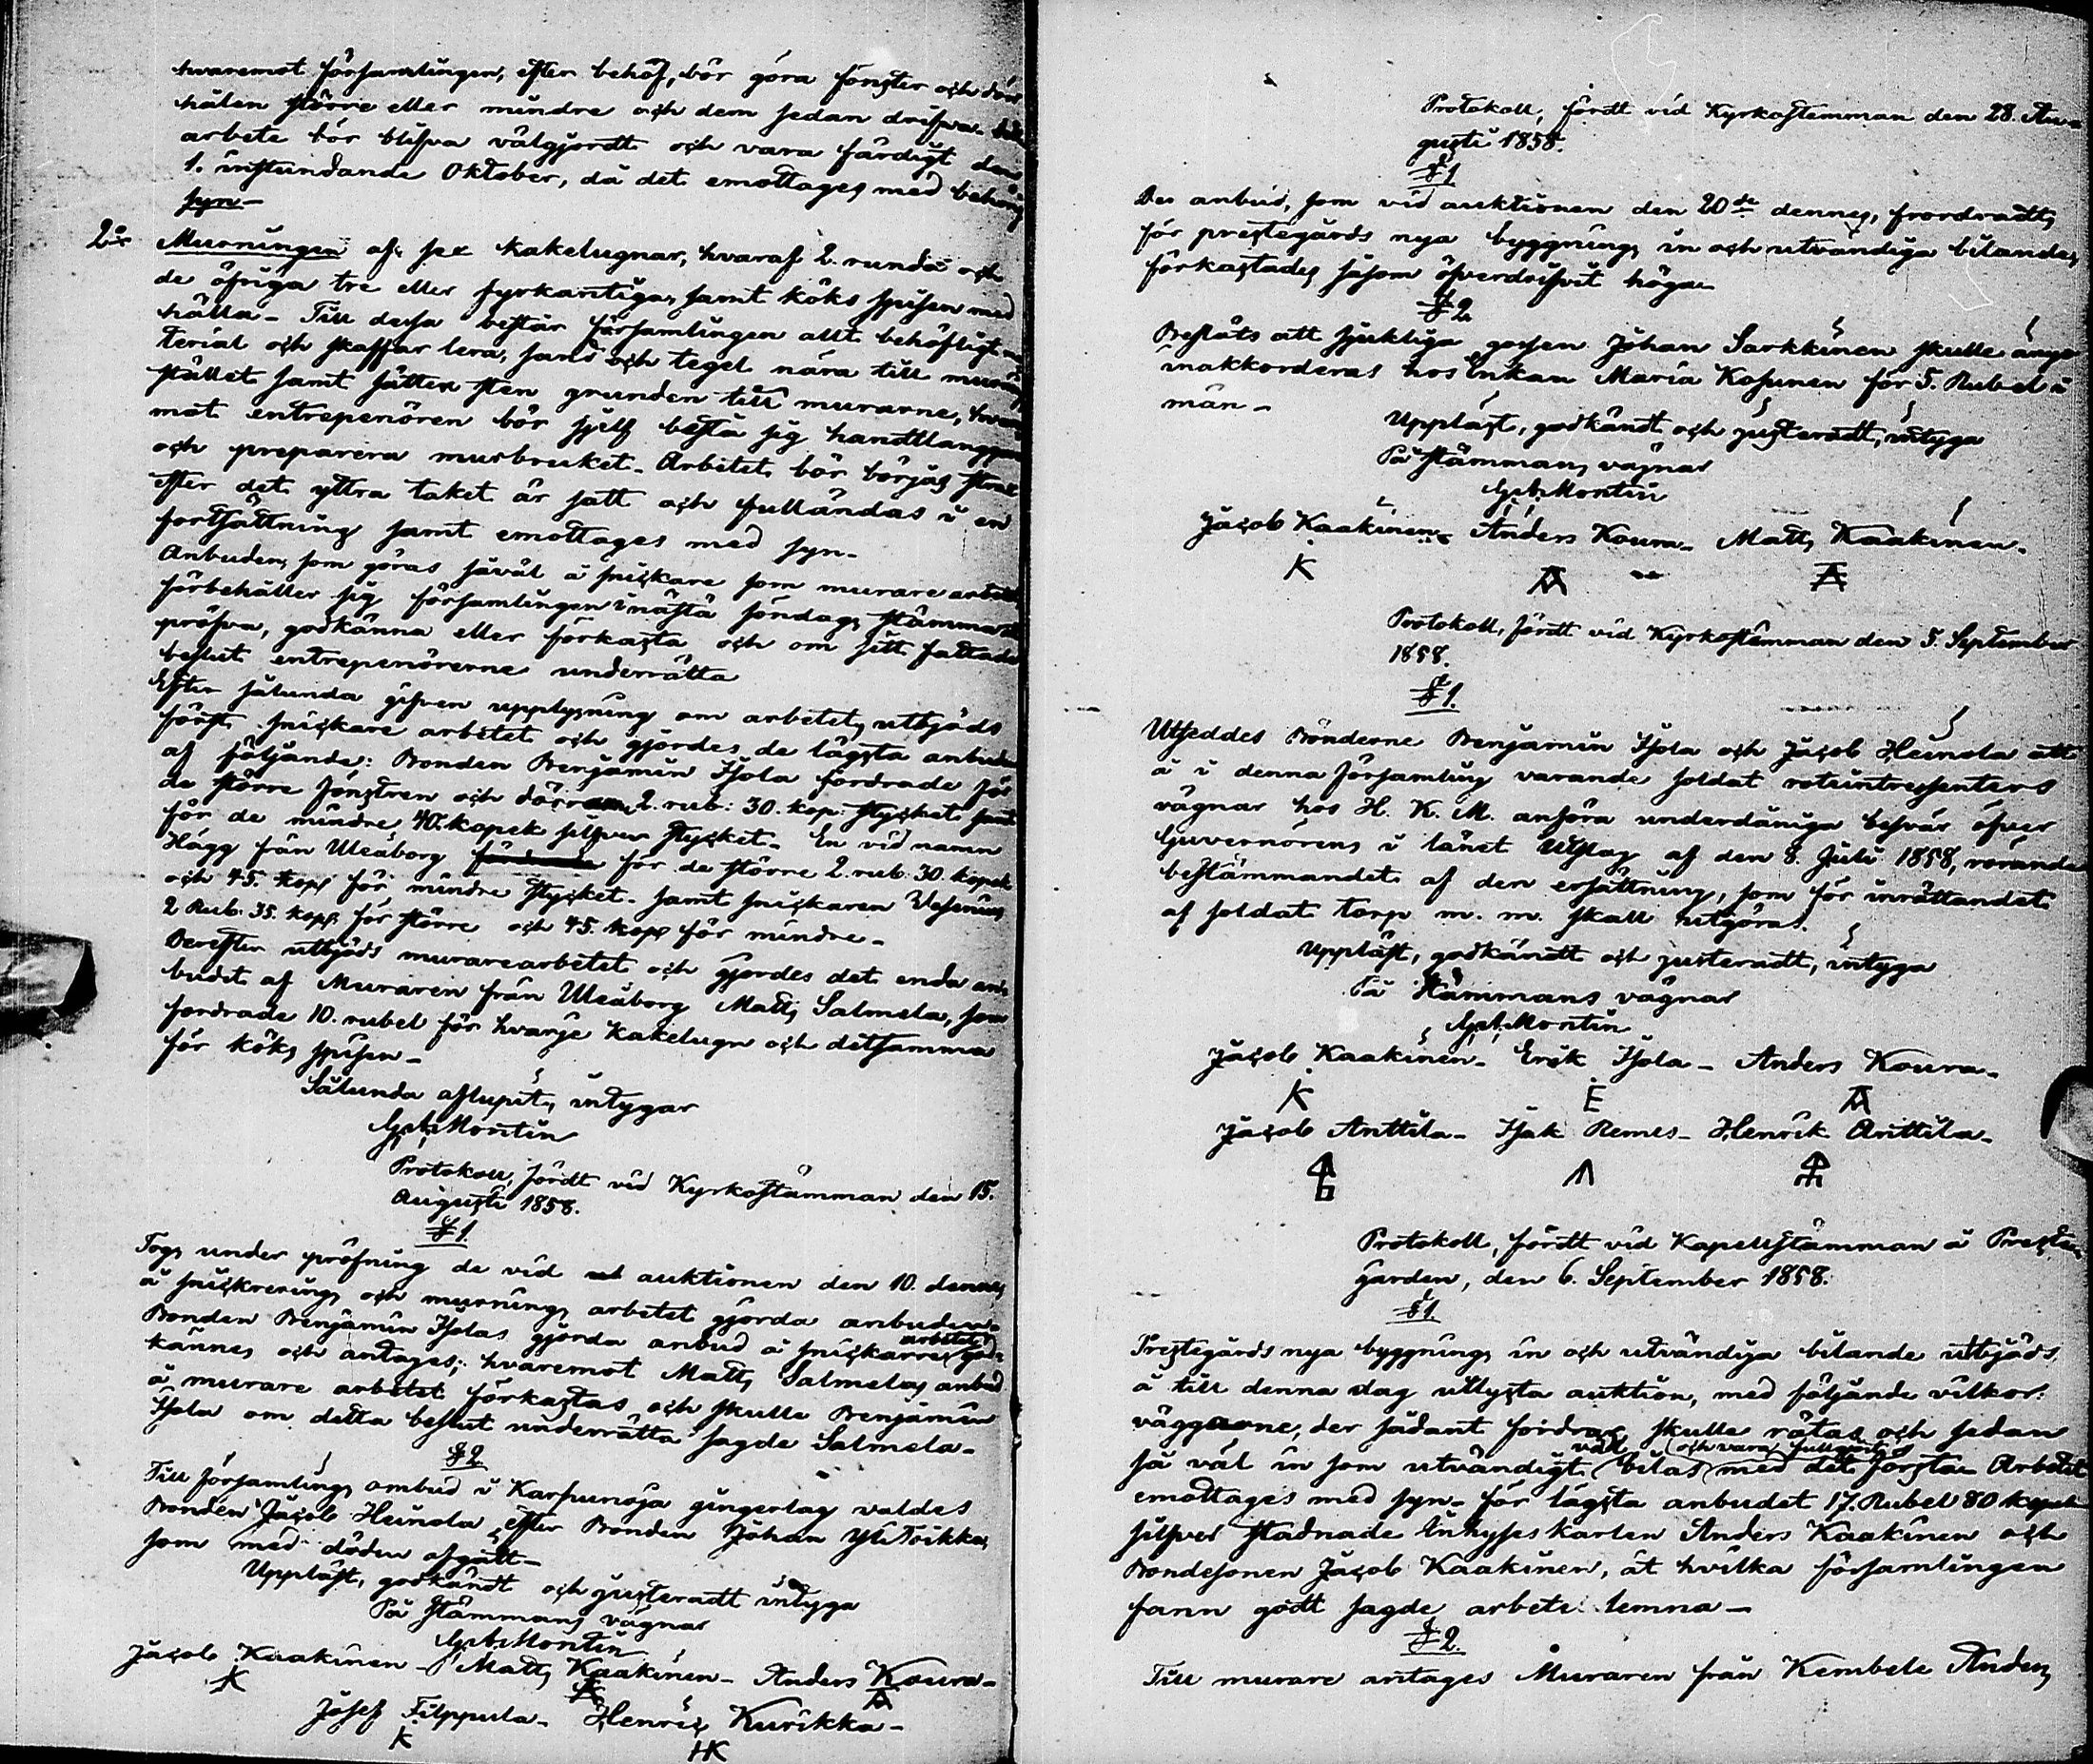 hwaremot församlingen, efter behof, bör göra fönster och dörr
hålen större eller mindre och dem sedan drifva.
arbete bör blifva välgjordt och vara färdigt den
1. instundande Oktober, då det emottages med behörig
syn-
2o Murningen af sex kakelugnar, hvaraf 2. runda och
de öfriga tre eller fyrkantiga, samt köks spisen med
hälla- Till dessa består församlingen allt behöfligt ma
terial och skaffar lera, sand och tegel nära till murnings
stället samt sätter sten grunden till murarne, hvare
mot entrepenören bör sjelf bestå sig handtlangare
och preparera murbruket- Arbetet bör börjas strax
efter det yttra taket är satt och fulländas i en
fortsättning samt emottages med syn-
Anbuden, som göras såväl å snickare som murare arbetet
förbehåller sig församlingen i nästa söndags stämma att
pröfva, godkänna eller förkasta, och om sitt fattade
beslut entrepenörerne underrätta
Efter sålunda gifven upplysning om arbetet, utbjöds
först snickare arbetet och gjordes de lägsta anbuden
af följande: Bonden Benjamin Isola fordrade för
de större fönstren och dörrarne 2. rub: 30. kop. stycket samt
för de mindre 40. kopek silfver stycket- En vid namn
Hägg från Uleåborg för de större 2. rub: 30. kopek
och 45. kop: för mindre stycket- samt snickaren Vasenius
2 Rub: 35. kop: för större och 45. kop: för mindre-
Derefter utbjöds murarearbetet och gjordes det enda an-
budet af Muraren från Uleåborg Matts Salmela, som
fordrade 10. rubel för hvarje kakelugn och detsamma
för köks spisen-
Sålunda aflupit, intygar
G.A. Montin
Protokoll, fördt vid Kyrkostämman den 15.
Augusti 1858.
§ 1.
Togs under pröfning de vid auktionen den 10. dennes
å snickrerings och murnings arbetet gjorda anbuden-
Bonden Benjamin Isolas gjorda anbud å snickarre arbetet god-
kännes och antages; hvaremot Matts Salmelas anbud
å murare arbetet förkastas och skulle Benjamin
Isola om detta beslut underrätta sagde Salmela-
§ 2
Till församlings ombud i Karhunoja gingerlag valdes
Bonden Jacob Heinola efter Bonden Johan Ylitoikka,
som med döden afgått-
Uppläst, godkändt och justeradt intyga
På Stämmans vägnar
G.A. Montin
Jacob Kaakinen- Matts Kaakinen- Anders Koura-
K A A
Josef Filppula- Henric Kurikka-
K HK
Protokoll, fördt vid Kyrkostemman den 28. Au-
gusti 1858.
§ 1
De anbud, som vid auktionen den 20de dennes, frordradts
för prestegårds nya byggnings in och utvandiga bilandes
förkastades såsom öfverdrifvit höga-
§ 2
Beslöts att sjukliga gossen Johan Sarkkinen skulle ännu
inakkorderas hos Enkan Maria Kosunen för 5. Rubel i
mån-
Uppläst, godkändt och justeradt, intyga
På stämmans vägnar
G.A. Montin
Jacob Kaakinen- Anders Koura- Matts Kaakinen-
K A A
Protokoll, fördt vid Kyrkostämman den 5. September
1858.
§ 1.
Utseddes Bönderne Benjamin Isola och Jacob Heinola att
å i denna församling varande soldat roteintressenters
vägnar hos H. K. M. anföra underdåniga besvär öfver
Guvernörens i länet Utslag af den 8. Juli 1858, rörande
bestämmandet af den ersättning, som för inrättandet
af soldat torp m. m. skall utgöras.
Uppläst, godkändt och justeradt, intyga
På Stämmans vägnar
G.A. Montin
Jacob Kaakinen- Erik Isola- Anders Koura-
K E A
Jacob Anttila- Isak Remes- Henrik Anttila-
Protokoll, fördt vid Kapellstämman å Preste-
garden, den 6. September 1858.
§ 1.
Prestegårds nya byggnings in och utvändiga bilande utbjöds
å till denna dag utlysta auktion, med följande vilkor:
väggarne, der sådant fordras skulle rätas och sedan
så väl in som utvändigt väl bilas och vara fullgjordt med det första- Arbetet
emottages med syn- för lägsta anbudet 17. Rubel 80 kopek
silfver stadnade Inhyseskarlen Anders Kaakinen och
Bondesonen Jacob Kaakinen, åt hvilka församlingen
fann godt sagde arbete lemna-
§ 2.
Till murare antages Muraren från Kembele Anders